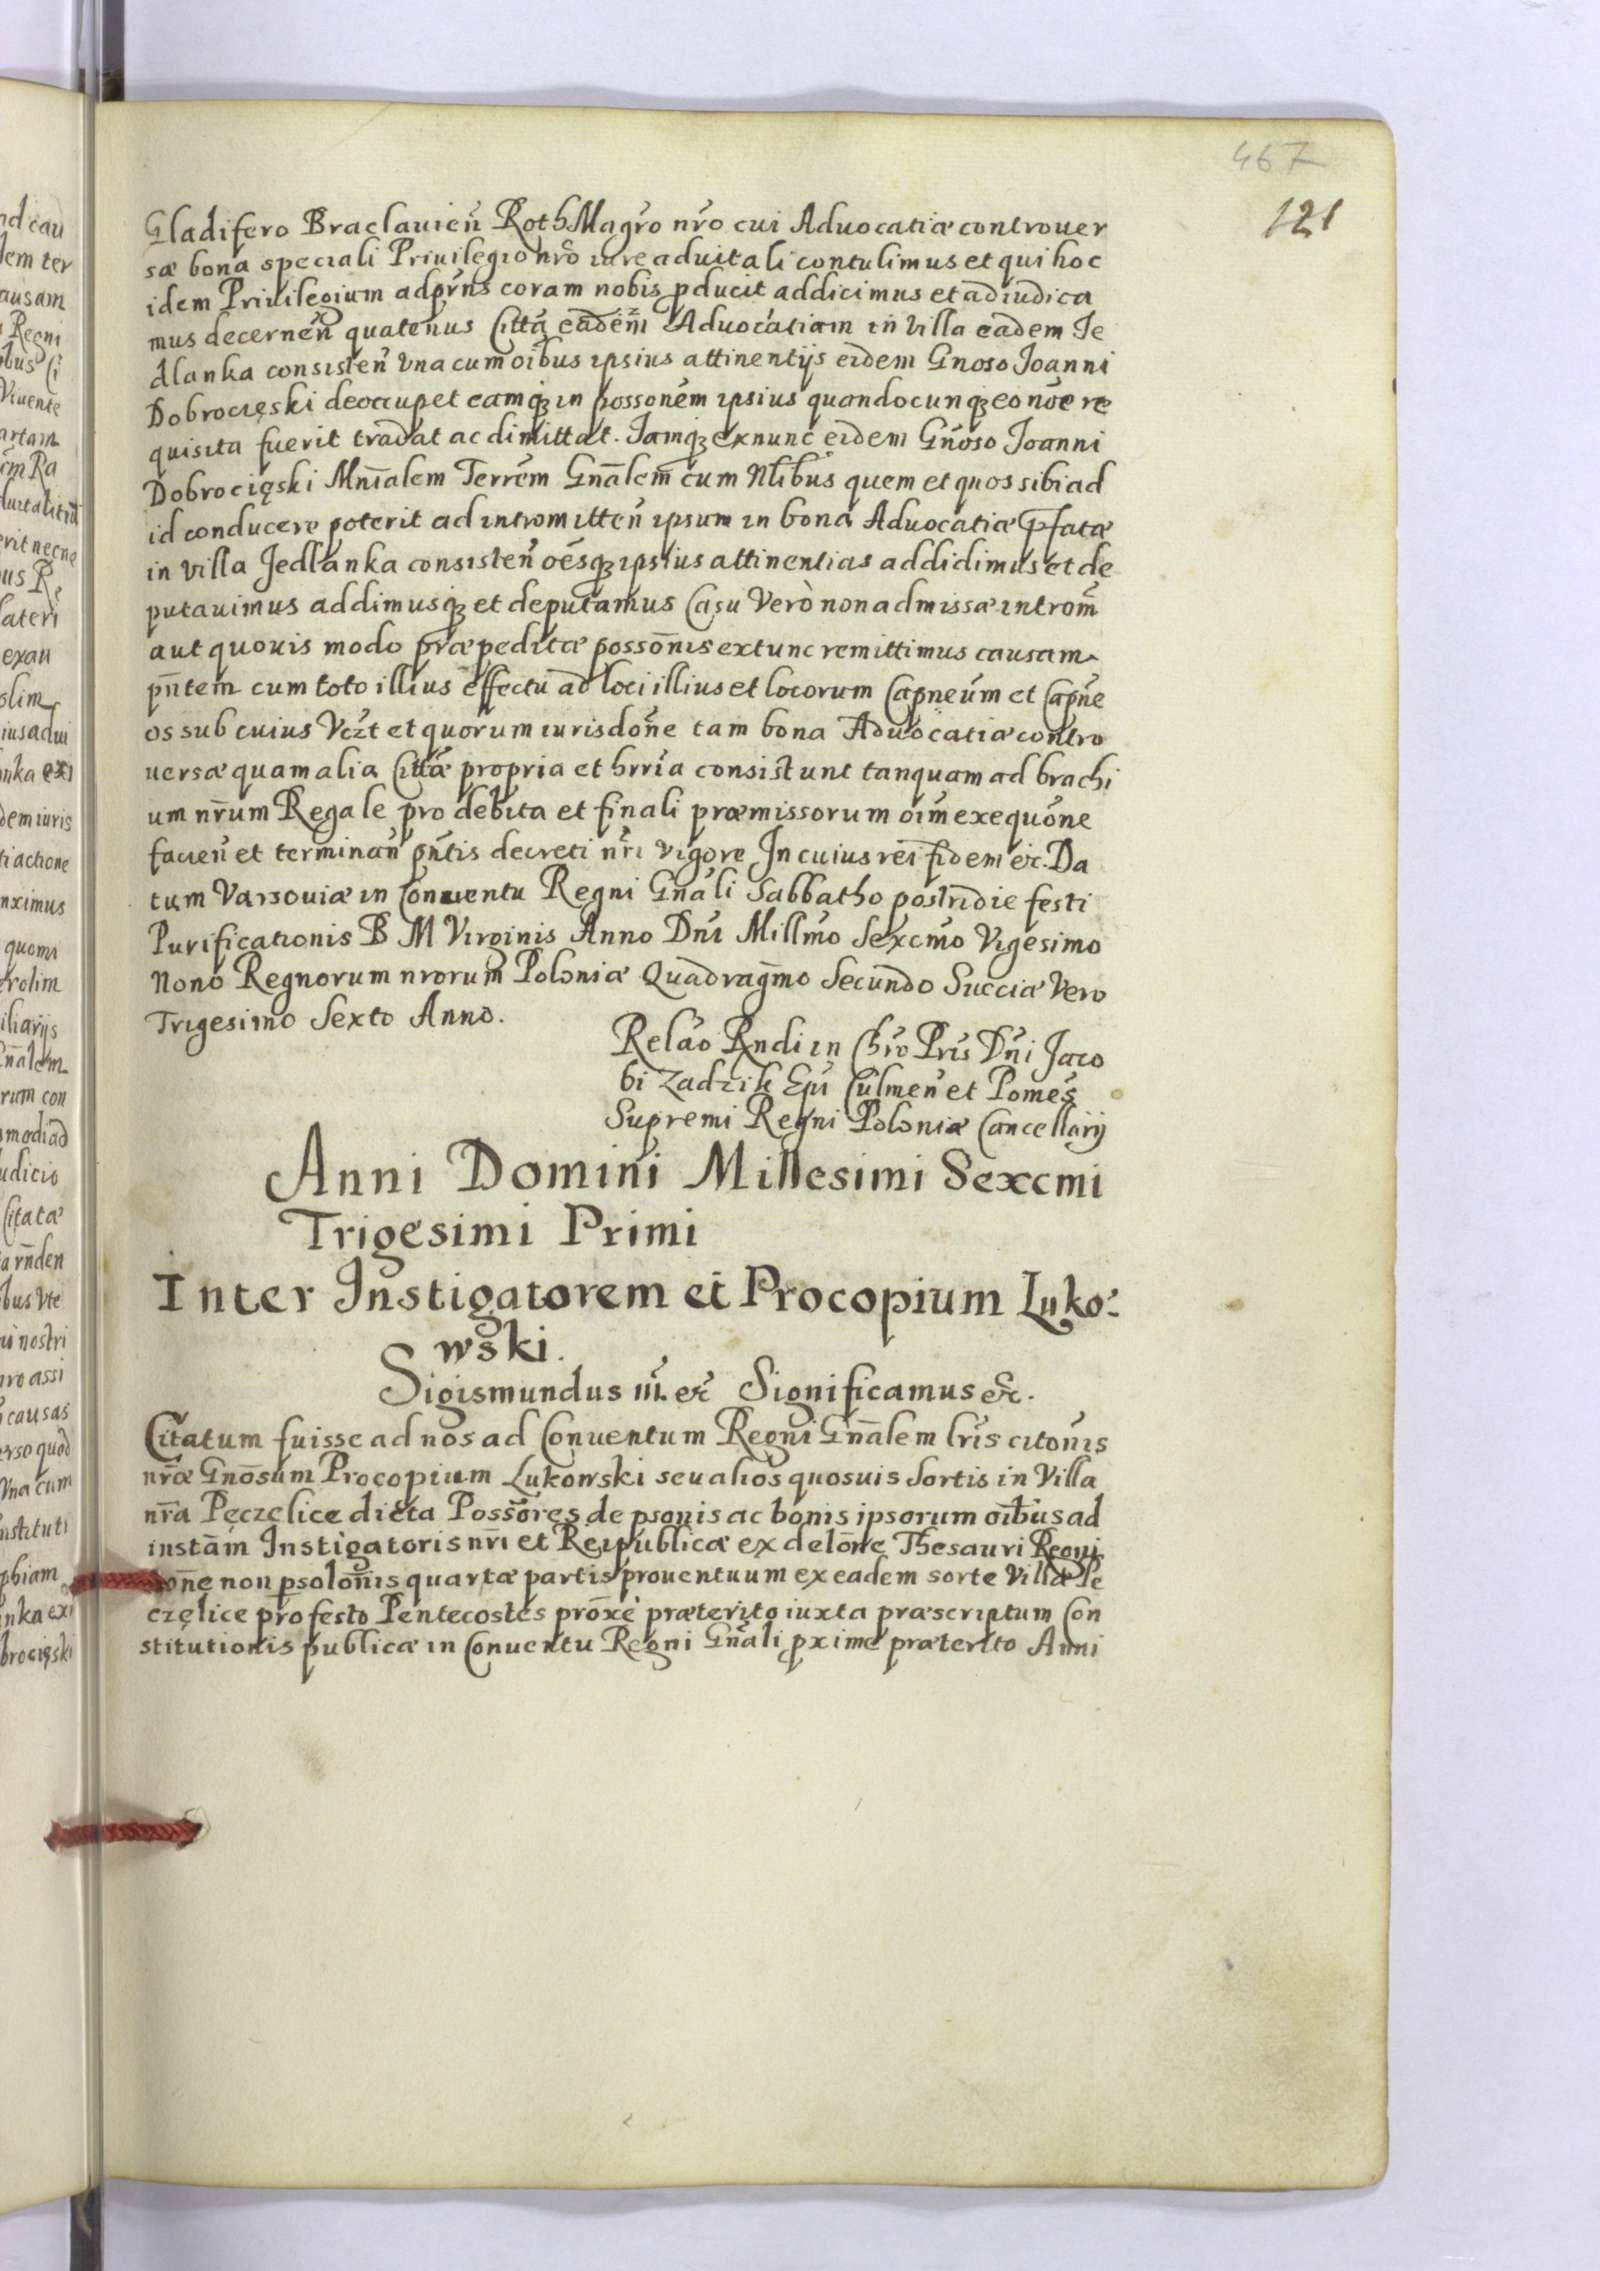 467
121
Gladifero Braclauien̄ RothMagr̃o nr̃o cui Aduocatiæ controuer
sæ bona speciali Priuilegio nr̃o iure aduitali contulimus et qui hoc
idem Priuilegium adpr̃ns coram nobis pducit addicimus et adiudica
mus decernen̄ quatenus Citta eadem Aduocatiam in villa eadem Je
dlanka consisten̄ vna cum oibus ipsius attinentijs eidem Gnoso Joanni
Dobrocięski deoccupet eamqꝫ in possonem ipsius quandocunqꝫ eo noe re
quisita fuerit tradat ac dimittat. Jamqꝫ exnunc eidem Gnoso Joanni
Dobrocięski Mn̄ialem Terrem Gn̄alem cum Nlibus quem et quos sibi ad
id conducere poterit ad intromitten̄ ipsum in bona Aduocatiæ p̄fatæ
in villa Jedlanka consisten̄ oesqꝫ ipsius attinentias addidimus et de
putauimus addimusqꝫ et deputamus Casu Verò non admissæ introm̄
aut quouis modo præpeditæ posson̄is extunc remittimus causam
pn̄tem cum toto illius effectu ad loci illius et locorum Capneum et Capne
os sub cuius Vczt et quorum iurisdone tam bona Aduocatiæ contro
uersæ quam alia Cittæ propria et hrria consistunt tanquam ad brachi
um nr̄um Regale pro debita et finali præmissorum oim exequone
facien̄ et terminan̄ pn̄tis decreti nr̄i vigore In cuius rei fidem etc. Da
tum Varsouiæ in Conuentu Regni Gnali Sabbatho postridie festi
Purificationis B M Virginis Anno Dn̄i Millmo Sexcmo Vigesimo
Nono Regnorum nrorum Poloniæ Quadragm̄o Secundo Sueciæ Vero
Trigesimo Sexto Anno.
Relao Rndi in Chro Pris Dn̄i Jaco
bi Zadzik Epi Culmen̄ et Pomes
Supremi Regni Poloniæ Cancellarij
Anni Domini Millesimi Sexcmi
Trigesimi Primi
Inter Instigatorem et Procopium Luko-
wski.
Sigismundus III. etc Significamus etc.
Citatum fuisse ad nos ad Conuentum Regni Gn̄alem lr̄is citonis
nr̄æ Gnosum Procopium Lukowski seu alios quosuis Sortis in Villa
nr̄a Pęczelice dicta Possores de psonis ac bonis ipsorum oibus ad
instam Instigatoris nr̄i et Reipublicæ ex delone Thesauri Regni
rone non psolonis quartæ partis prouentuum ex eadem sorte Villæ Pę
czelice pro festo Pentecostes proxè præterito iuxta præscriptum Con
stitutionis publicæ in Conuentu Regni Gnali pxime præterito Anni